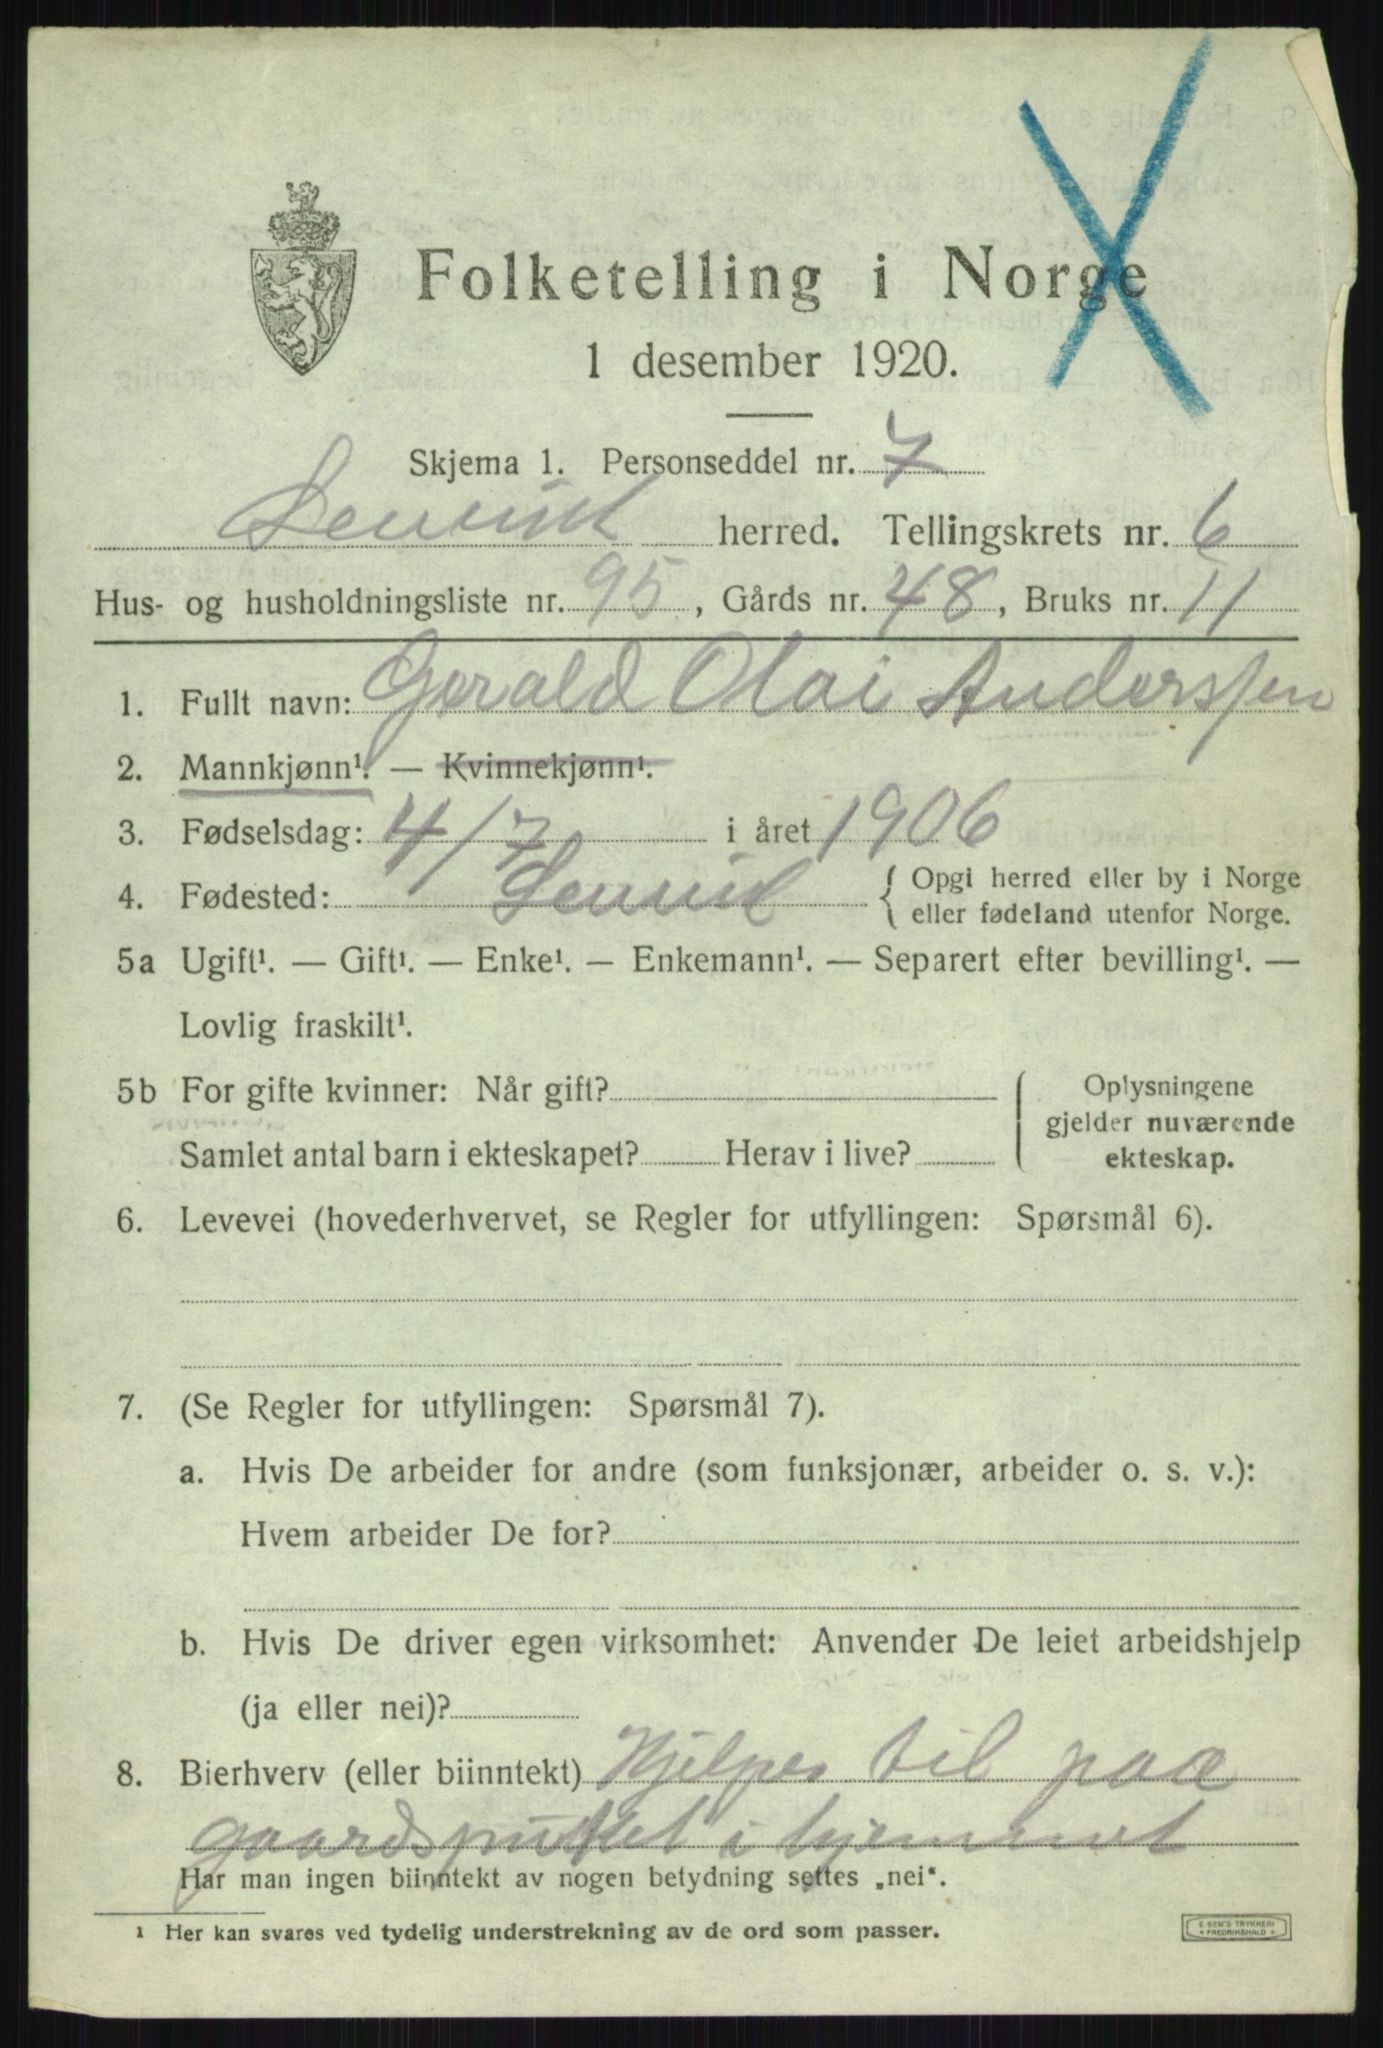 Folketelling i Norge
1 desember 1920.
Skjema 1. Personseddel nr. 7
Lenvik herred. Tellingskrets nr. 6
Hus- og husholdningsliste nr. 95, Gårds nr. 48, Bruks nr. 11
1. Fullt navn: Gerald Olai Anderssen
2. Mannkjønn¹. — Kvinnekjønn¹.
3. Fødselsdag: 4/7 i året 1906
4. Fødested: Lenvik { Opgi herred eller by i Norge
eller fødeland utenfor Norge.
5a Ugift¹. — Gift¹. — Enke¹. — Enkemann¹. — Separert efter bevilling¹. —
Lovlig fraskilt¹.
5b For gifte kvinner: Når gift? Oplysningene
gjelder nuværende
Samlet antal barn i ekteskapet? Herav i live? ekteskap.
6. Levevei (hovederhvervet, se Regler for utfyllingen: Spørsmål 6).
7. (Se Regler for utfyllingen: Spørsmål 7).
a. Hvis De arbeider for andre (som funksjonær, arbeider o. s. v.):
Hvem arbeider De for?
b. Hvis De driver egen virksomhet: Anvender De leiet arbeidshjelp
(ja eller nei)?
8. Bierhverv (eller biinntekt) Hjelper til paa
gaardsbruket i hjemmet
Har man ingen biinntekt av nogen betydning settes „nei“.
¹ Her kan svares ved tydelig understrekning av de ord som passer.
E. SEM'S TRYKKERI
FREDRIKSHALD